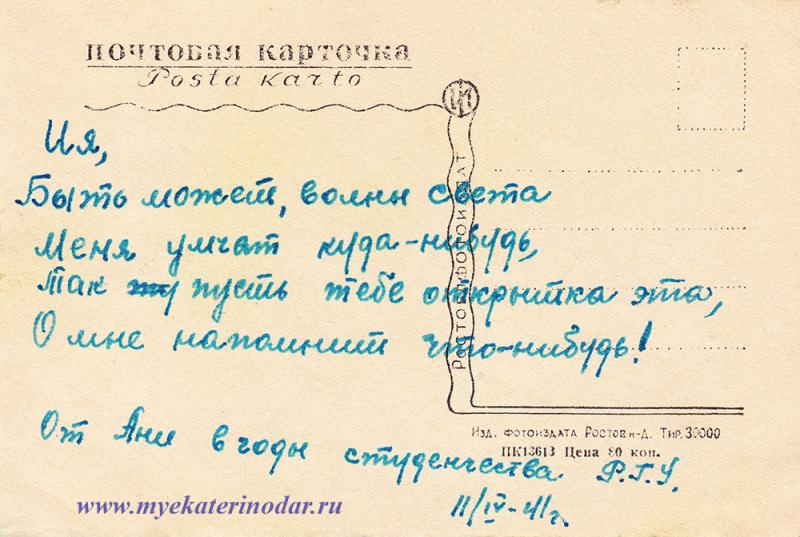 ПОЧТОВАЯ КАРТОЧКА
Posta karto
Ия,
Быть может, волны света
Меня умчат куда-нибудь,
Так пусть тебе открытка эта,
О мне напомнит что-нибудь!
От Ани в годы студенчества Р.Г.У.
11/IV-41г.
РОСТОВИЗОФОТОИЗДАТ
Изд. фотоиздата Ростов н-Д. Тир. 30000
ПК13613 Цена 80 коп.
www.myekaterinodar.ru